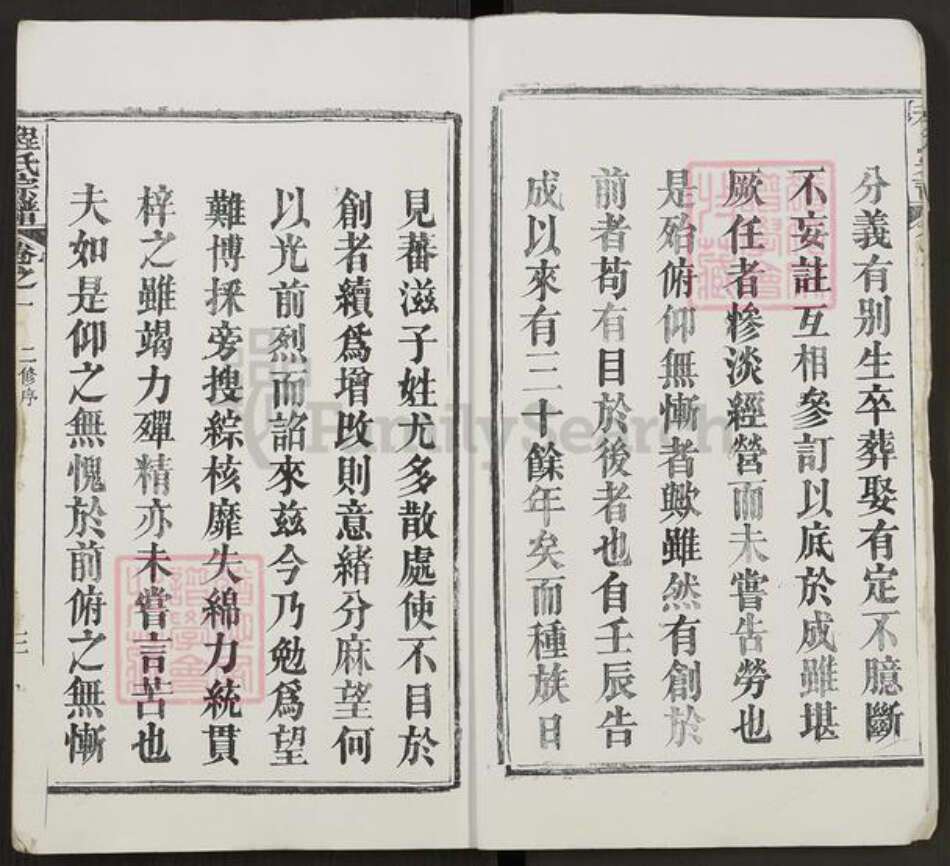 分義有别生卒葬娶有定不臆斷
不妄註互相參訂以底於成雖堪
厥任者慘淡經營而未嘗告勞也
是殆俯仰無慚者歟雖然有創於
前者苟有目於後者也自壬辰告
成以來有三十餘年矣而種族日
見蕃滋子姓尤多散處使不目於
創者續爲增改則意緒分麻望何
以光前烈而詔來兹今乃勉爲望
難博採旁搜綜核靡失綿力統貫
梓之雖竭力殫精亦未嘗言苦也
夫如是仰之無愧於前俯之無慚
程氏宗譜
卷之一
二修序
FamilySearch